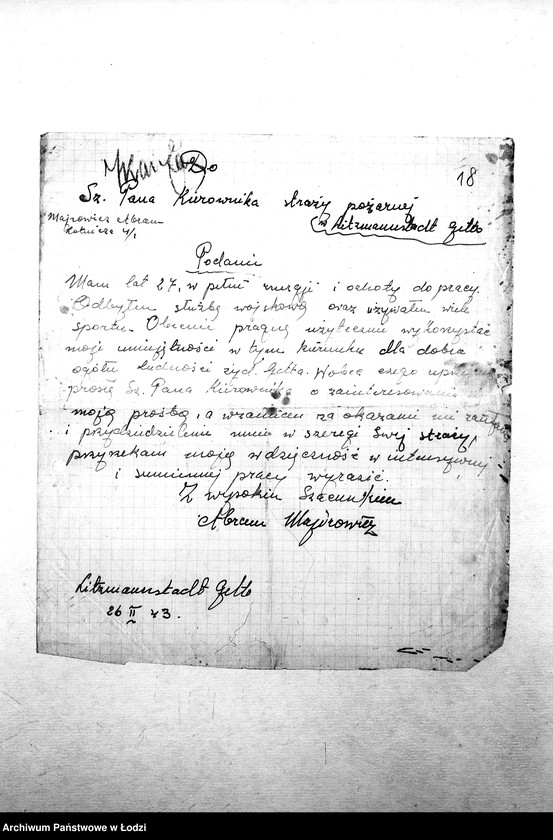 Do
18
Sz. Pana Kierownika straży pożarnej
w Litzmannstadt Getto
Majrowicz Abram
Kelnicza 4/1
Podanie
Mam lat 27, w pełni energji i ochoty do pracy.
Odbyłem służbę wojskową oraz używałem wiele
sportu. Obecnie pragnę użytecznie wykorzystać
moje umiejętności w tym kierunku dla dobra
ogółu ludności żyd. Getta. Wobec czego uprzejmie
proszę Sz. Pana Kierownika o zainteresowanie
moją prośbą, a wzamian za okazanie mi zaufania
i przydzielenie mnie w szeregi Swej straży,
przyrzekam moją wdzięczność w intensywnej
i sumiennej pracy wyrazić.
Z wysokim Szacunkiem
Abram Majrowicz
Litzmannstadt Getto
26 II 43.
Archiwum Państwowe w Łodzi